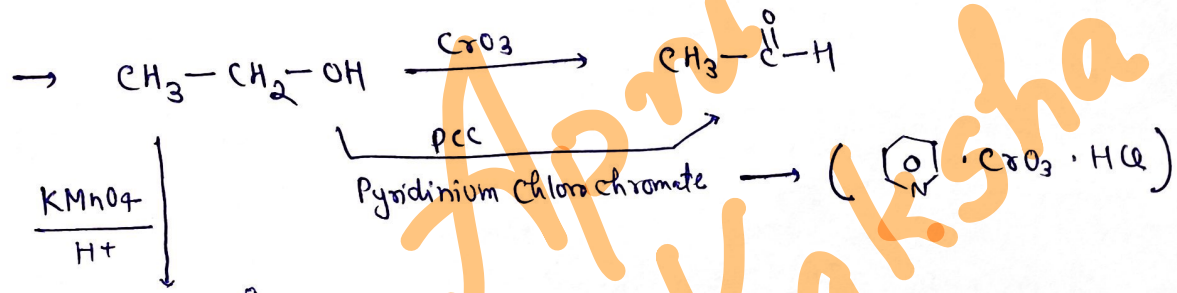 → CH3 — CH2 — OH —CrO3→ CH3 — C(=O) — H
PCC
Pyridinium Chlorochromate → ( N · CrO3 · HCl )
KMnO4
H+
Apni Kaksha